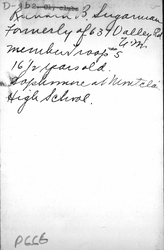 D-
B Sugarman
Formerly of 639 Valley Rd
U.M.
member Troop #5
16 1/2 years old.
Sophomore at Montclair
High School.